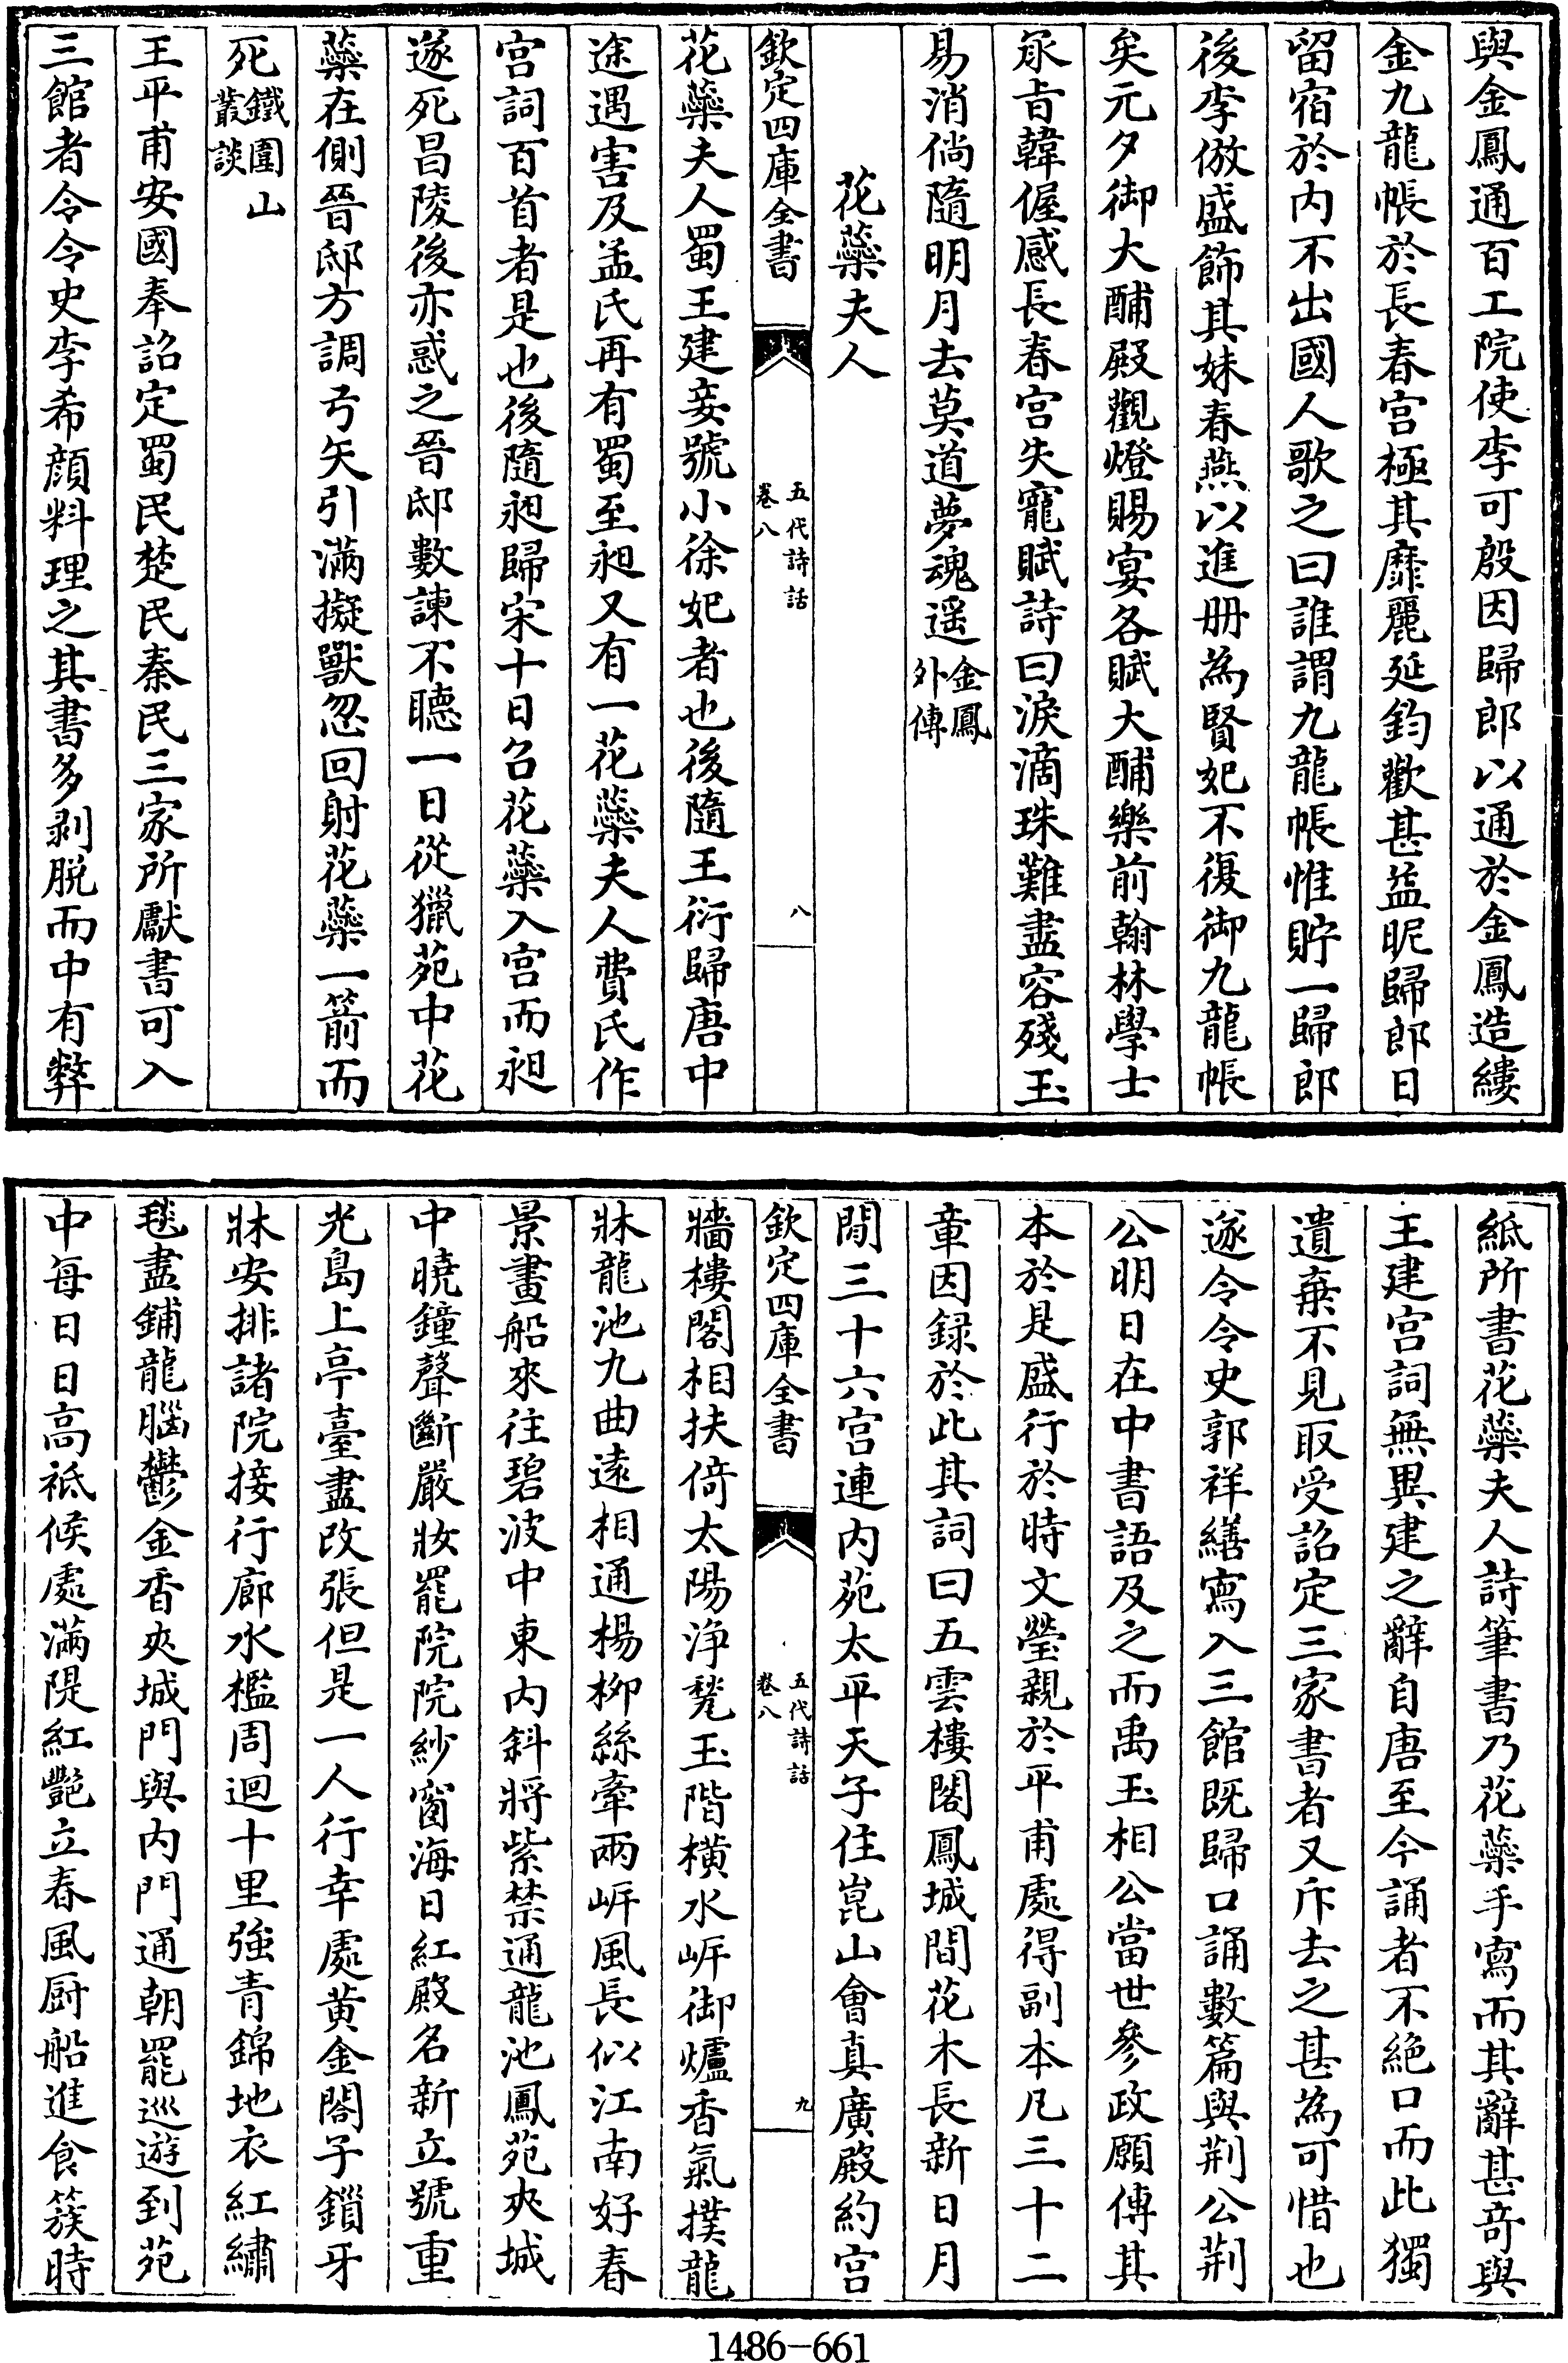 與金鳳通百工院使李可殷因歸郎以通於金鳳造縷
金九龍帳於長春宫極其靡麗延鈞歡甚益昵歸郎日
留宿於内不出國人歌之曰誰謂九龍帳惟貯一歸郎
後李倣盛飾其妹春燕以進册為賢妃不復御九龍帳
矣元夕御大酺殿觀燈賜宴各賦大酺樂前翰林學士
承㫖韓偓感長春宫失寵賦詩曰淚滴珠難盡容殘玉
易消倘隨明月去莫道夢魂遥金鳳
外傳
花蘂夫人
欽定四庫全書
五代詩話
卷八
八
花蘂夫人蜀王建妾號小徐妃者也後隨王衍歸唐中
途遇害及孟氏再有蜀至昶又有一花蘂夫人費氏作
宫詞百首者是也後隨昶歸宋十日召花蘂入宫而昶
遂死昌陵後亦惑之晉邸數諫不聽一日從獵苑中花
蘂在側晉邸方調弓矢引滿擬獸忽回射花蘂一箭而
死鐵圍山
叢談
王平甫安國奉詔定蜀民楚民秦民三家所獻書可入
三館者令令史李希顔料理之其書多剥脱而中有弊
紙所書花蘂夫人詩筆書乃花蘂手寫而其辭甚竒與
王建宫詞無異建之辭自唐至今誦者不絶口而此獨
遺棄不見取受詔定三家書者又斥去之甚為可惜也
遂令令史郭祥繕寫入三館既歸口誦數篇與荆公荆
公明日在中書語及之而禹玉相公當世參政願傳其
本於是盛行於時文瑩親於平甫處得副本凡三十二
章因録於此其詞曰五雲樓閣鳳城間花木長新日月
閒三十六宫連内苑太平天子住崑山會真廣殿約宫
欽定四庫全書
五代詩話
卷八
九
牆樓閣相扶倚太陽浄甃玉階横水㟁御爐香氣撲龍
牀龍池九曲遠相通楊栁絲牽兩㟁風長似江南好春
景畫船來往碧波中東内斜將紫禁通龍池鳳苑夾城
中曉鐘聲斷嚴妝罷院院紗窗海日紅殿名新立號重
光島上亭臺盡改張但是一人行幸處黄金閣子鎖牙
牀安排諸院接行廊水檻周迴十里強青錦地衣紅繡
毯盡鋪龍腦鬱金香夾城門與内門通朝罷巡遊到苑
中每日日高祗候處滿隄紅艷立春風厨船進食簇時
1486-661